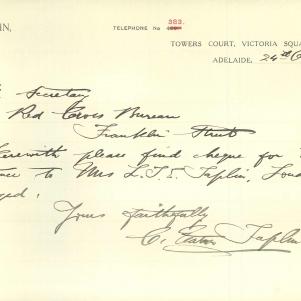 IN,
TELEPHONE No 383.
TOWERS COURT, VICTORIA SQUA
ADELAIDE, 24th
Secretary
Red Cross Bureau
Franklin Street
erewith please find cheque for
ence to Mrs L.T.S. Taplin, Lond
ged.
Yours faithfully
C. Eaton Taplin